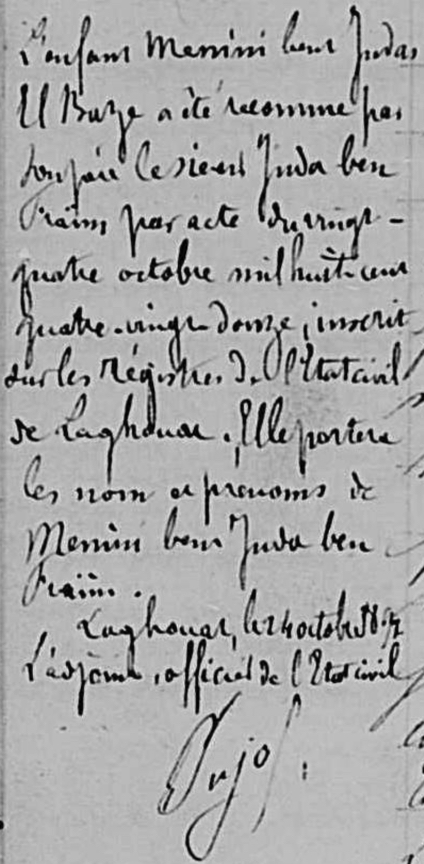 L'enfant Messini bent Judas
El Baze a été reconnue par
son père le sieur Juda ben
Fraïm, par acte du vingt-
quatre octobre mil huit cent
quatre-vingt-douze, inscrit
sur les régistres de l'Etat civil
de Laghouat. Elle portera
les nom et prénoms de
Messini bent Juda ben
Fraïm.
Laghouat, le 24 octobre 1892
L'adjoint, officier de l'Etat civil